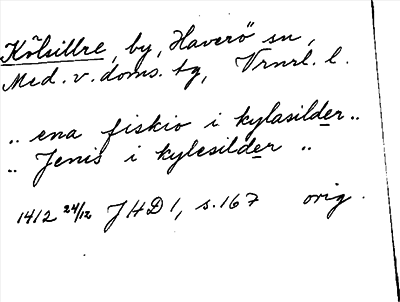 Kölsillre, by, Haverö sn,
Med. v. doms. tg, Vrnrl. l.
„ ena fiskio i kylasilder „
„ Jenis i kylesilder „
1412 24/12 JHD 1, s. 167 orig.